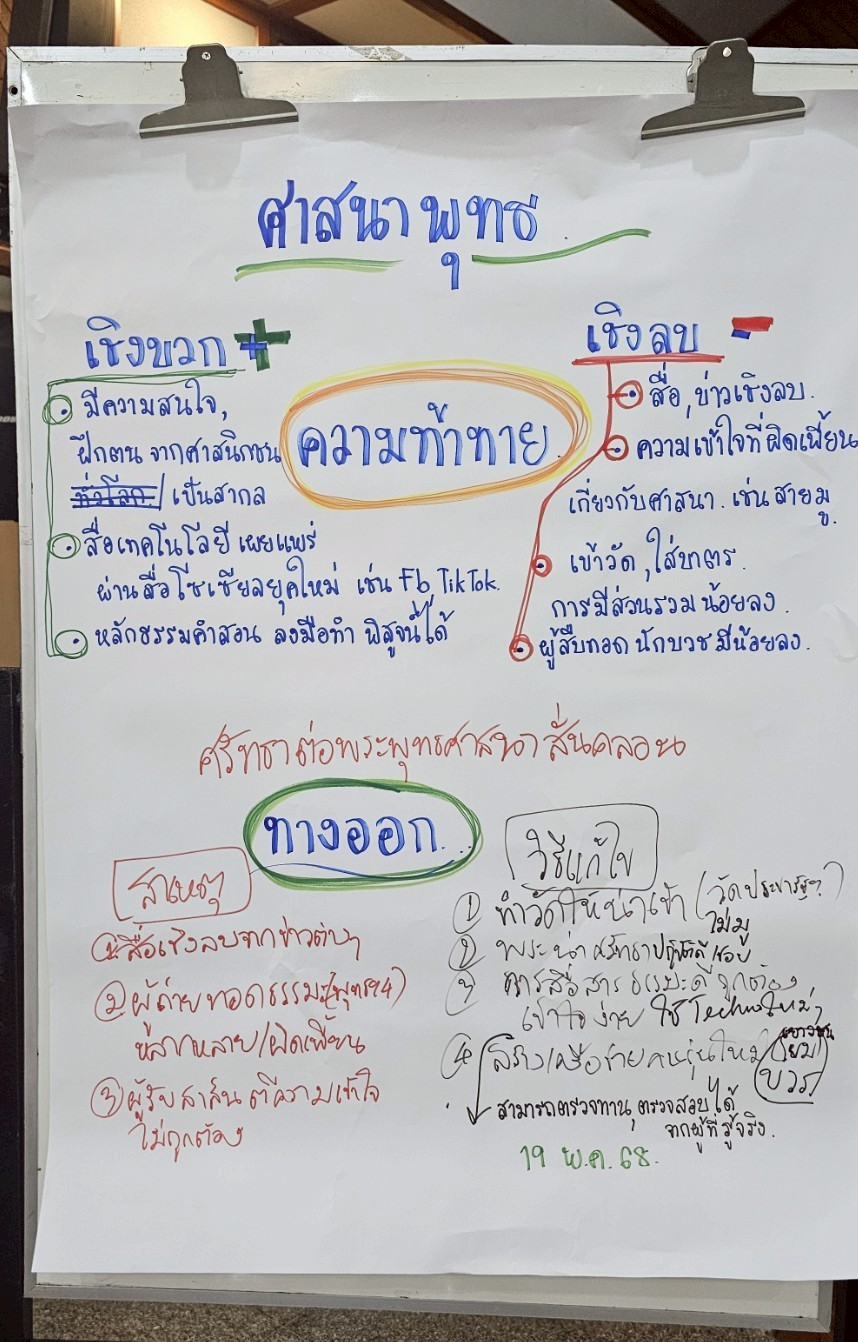 ศาสนาพุทธ
เชิงบวก +
มีความสนใจ,
ฝึกตน จากศาสนิกชน
ทั่วโลก / เป็นสากล
สื่อเทคโนโลยี เผยแพร่
ผ่านสื่อโซเชียลยุคใหม่ เช่น Fb, TikTok.
หลักธรรมคำสอน ลงมือทำ พิสูจน์ได้
ความท้าทาย
เชิงลบ -
สื่อ, ข่าวเชิงลบ.
ความเข้าใจที่ผิดเพี้ยน
เกี่ยวกับศาสนา. เช่น สายมู
เข้าวัด, ใส่บาตร.
การมีส่วนรวมน้อยลง.
ผู้สืบทอด นักบวช มีน้อยลง.
ศรัทธาต่อพระพุทธศาสนาสั่นคลอน
ทางออก...
สาเหตุ
① สื่อเชิงลบจากข่าวต่างๆ
② ผู้ถ่ายทอดธรรมะ
หลากหลาย/ผิดเพี้ยน
③ ผู้รับสาส์น ตีความเข้าใจ
ไม่ถูกต้อง
วิธีแก้ไข
① ทำวัดให้น่าเข้า (วัดประชารัฐฯ)
ไม่มู
② พระน่าศรัทธาปฏิบัติดีชอบ
③ การสื่อสารธรรมะดี ถูกต้อง
เข้าใจง่าย ใช้ Technoใหม่ๆ
④ สร้างเครือข่ายคนรุ่นใหม่
(บวร)
สามารถตรวจทาน, ตรวจสอบได้
จากผู้ที่รู้จริง.
19 พ.ค. 68.